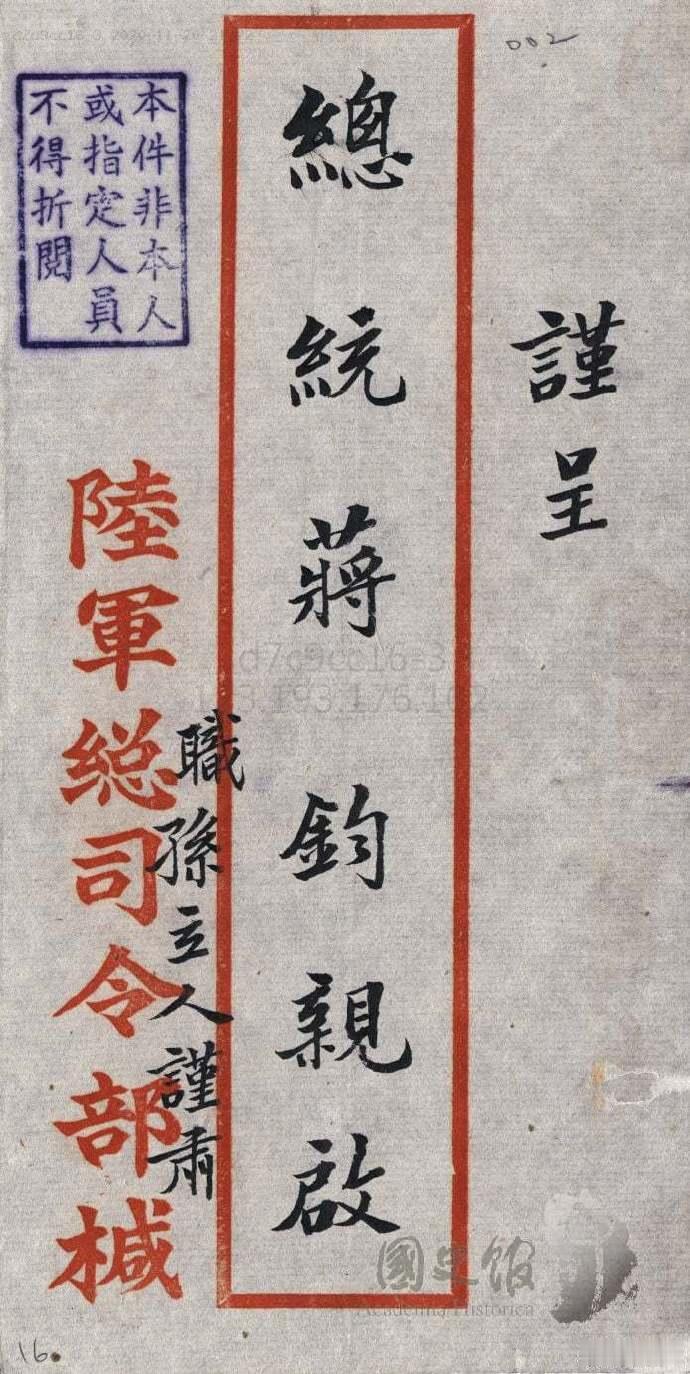 002
謹呈
總統蔣鈞親啟
職孫立人謹肅
陸軍総司令部械
本件非本人
或指定人員
不得折閱
d7c9cc16-3
163.193.176.102
國史館
Academia Historica
16